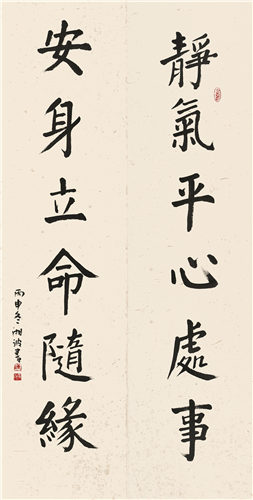 靜氣平心處事
安身立命隨緣
丙申冬湘波書